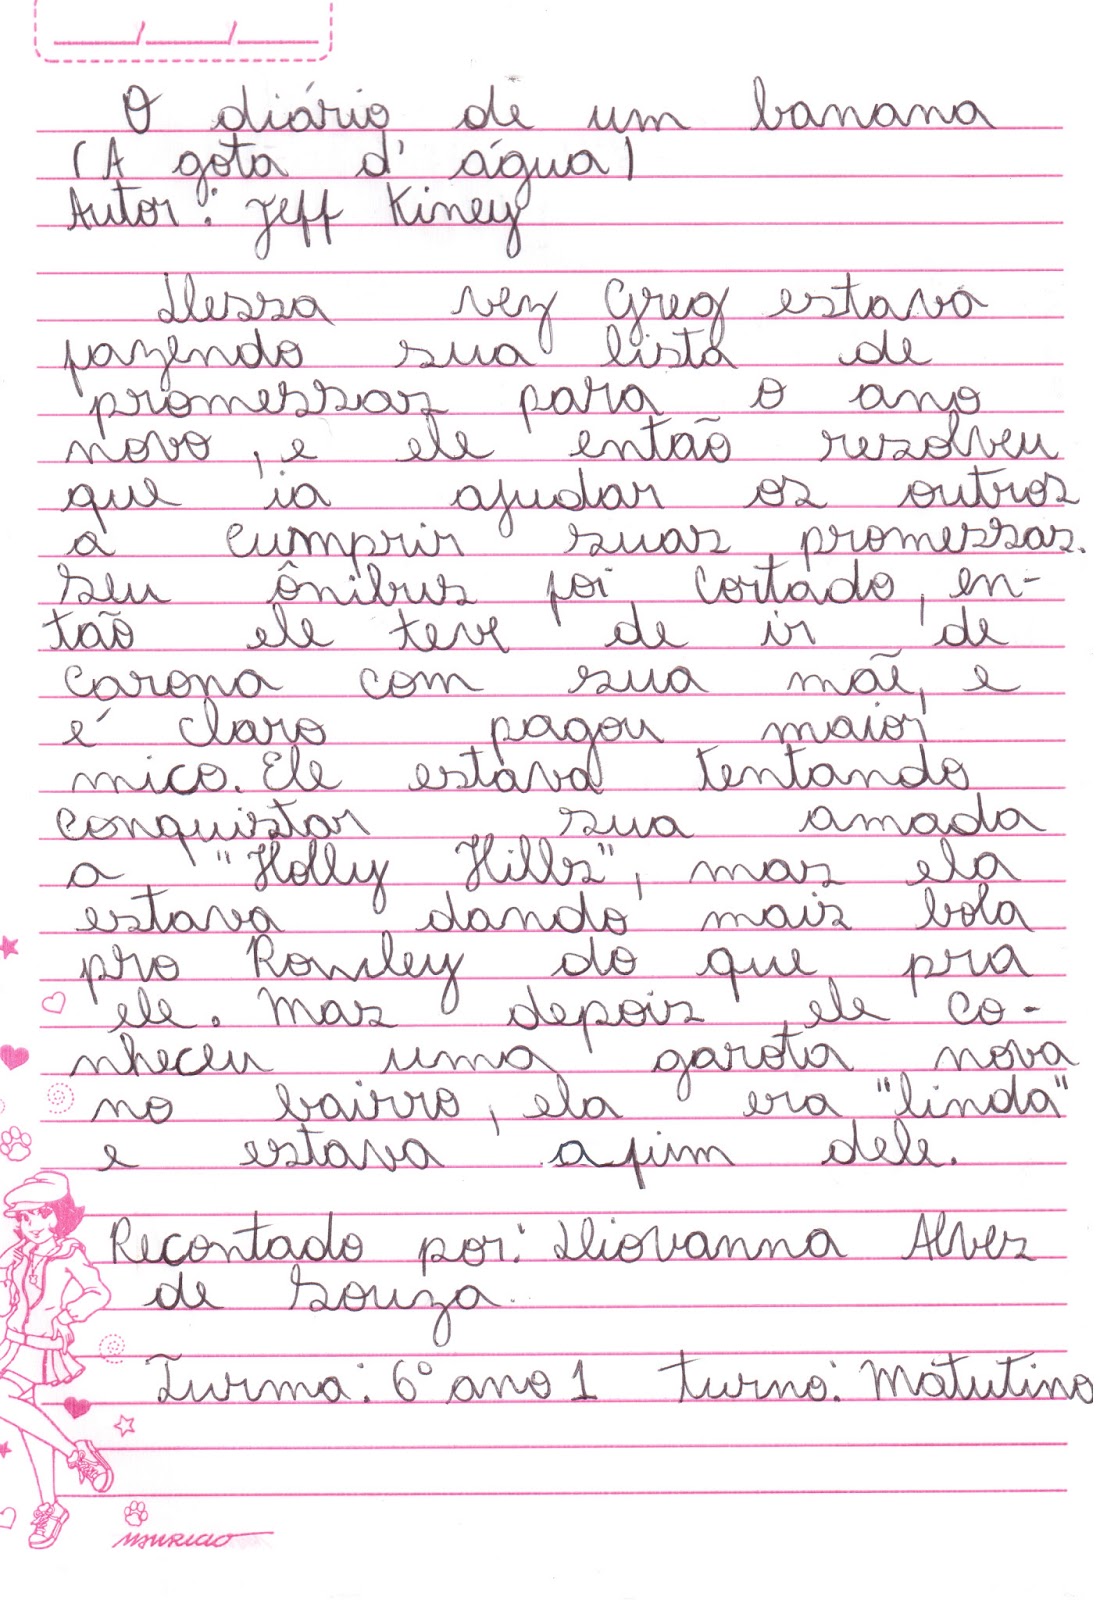 O diário de um banana
(A gota d' água)
Autor: Jeff Kiney
Dessa vez Greg estava
fazendo sua lista de
promessas para o ano
novo, e ele então resolveu
que ia ajudar os outros
a cumprir suas promessas.
Seu ônibus foi cortado, en-
tão ele teve de ir de
carona com sua mãe, e
é claro pagou maior
mico. Ele estava tentando
conquistar sua amada
a "Holly Hills", mas ela
estava dando mais bola
pro Rowley do que pra
ele. Mas depois ele co-
nheceu uma garota nova
no bairro, ela era "linda"
e estava afim dele.
Recontado por: Giovanna Alves
de Souza.
Turma: 6º ano 1 turno: Matutino
MAURICIO